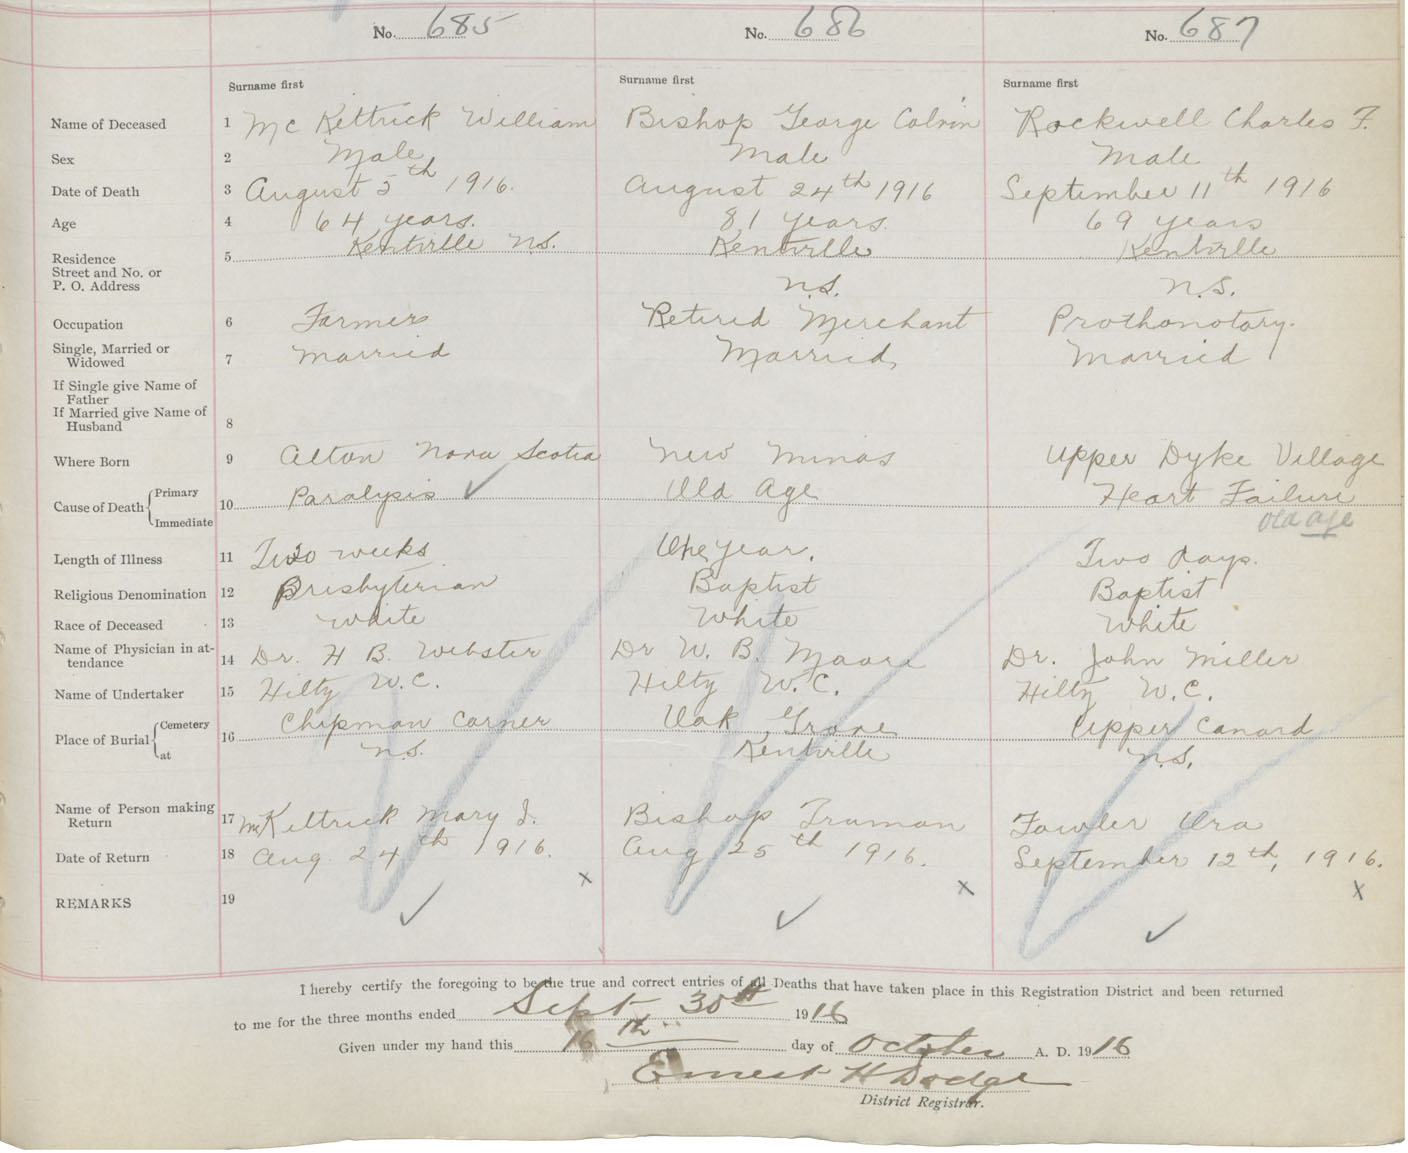 No. 685 No. 686 No. 687
Surname first Surname first Surname first
Name of Deceased 1 McKettrick William Bishop George Colvin Rockwell Charles F.
Sex 2 Male Male Male
Date of Death 3 August 5th 1916. August 24th 1916 September 11th 1916
Age 4 64 years. 81 years. 69 years
Residence
Street and No. or
P. O. Address 5 Kentville N.S. Kentville Kentville
N.S. N.S.
Occupation 6 Farmer Retired Merchant Prothonotary.
Single, Married or
Widowed 7 Married Married Married
If Single give Name of
Father
If Married give Name of
Husband 8
Where Born 9 Alton Nova Scotia New Minas Upper Dyke Village
Cause of Death Primary
Immediate 10 Paralysis ✓ Old Age Heart Failure
Old age
Length of Illness 11 Two weeks One year. Two days.
Religious Denomination 12 Presbyterian Baptist Baptist
Race of Deceased 13 White White White
Name of Physician in at-
tendance 14 Dr. H B. Webster Dr W. B. Moore Dr. John Miller
Name of Undertaker 15 Hilty W.C. Hilty W.C. Hilty W.C.
Place of Burial Cemetery
at 16 Chipman Corner Oak Grove Upper Canard
N.S. Kentville N.S.
Name of Person making
Return 17 McKettrick Mary J. Bishop Truman Fowler Ora
Date of Return 18 Aug. 24th 1916. Aug 25th 1916. September 12th, 1916.
REMARKS 19 x x x
✓ ✓ ✓
I hereby certify the foregoing to be the true and correct entries of all Deaths that have taken place in this Registration District and been returned
to me for the three months ended Sept 30th 1916
Given under my hand this 16th day of October A. D. 1916
Ernest H Dodge
District Registrar.